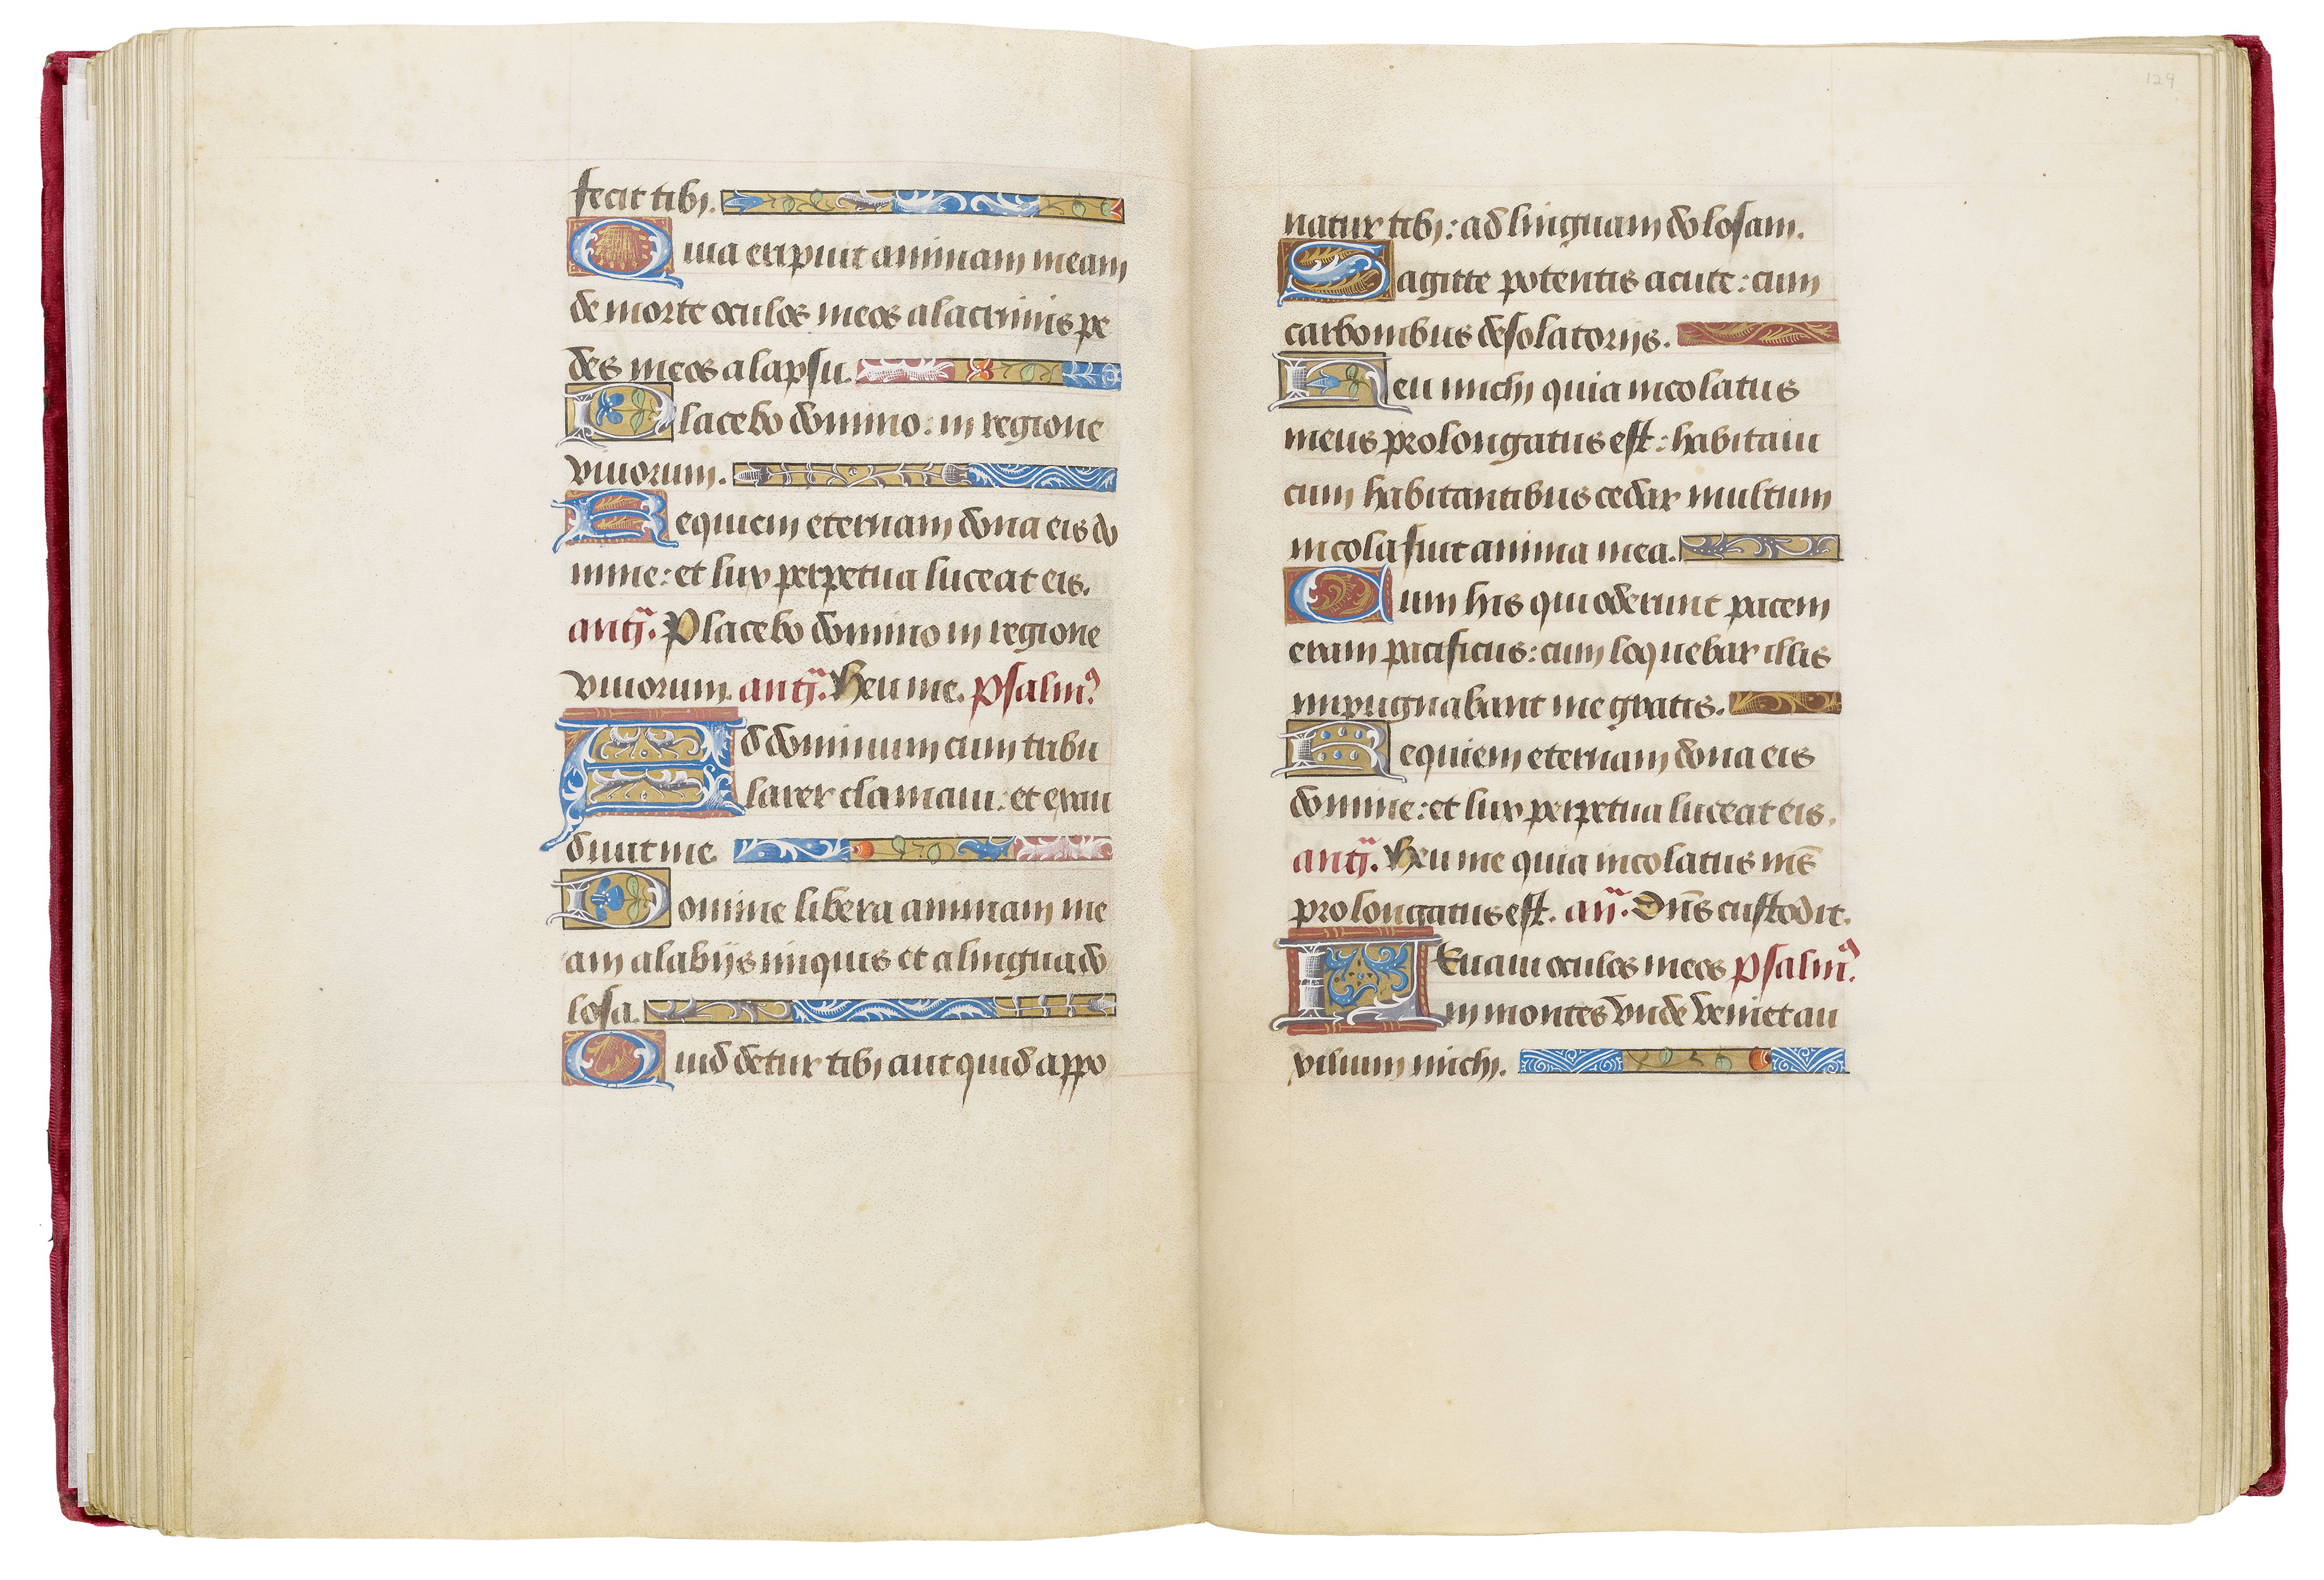 fecit tibi.
Quia eripuit animam meam
de morte oculos meos a lacrimis pe
des meos a lapsu.
Placebo domino: in regione
viuorum.
Requiem eternam dona eis do
mine: et lux perpetua luceat eis.
antῑ. Placebo domino in regione
viuorum. antῑ. Heu me. psalmꝰ
Ad dominum cum tribu
larer clamaui: et exau
diuit me.
Domine libera animam me
am a labijs iniquis et a lingua do
losa.
Quid detur tibi aut quid appo
129
natur tibi: ad linguam dolosam.
Sagitte potentis acute: cum
carbonibus desolatorijs.
Heu michi quia incolatus
meus prolongatus est: habitaui
cum habitantibus cedar multum
incola fuit anima mea.
Cum his qui oderunt pacem
eram pacificus: cum loquebar illis
inpugnabant me gratis.
Requiem eternam dona eis
domine: et lux perpetua luceat eis.
antῑ. Heu me quia incolatus me᷒
prolongatus est. añ. Dn̄s custodit.
LEuaui oculos meos psalmꝰ.
in montes vnde veniet au
xilium michi.